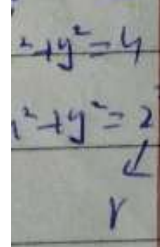 ²+y²=4
²+y²=2
↙
r